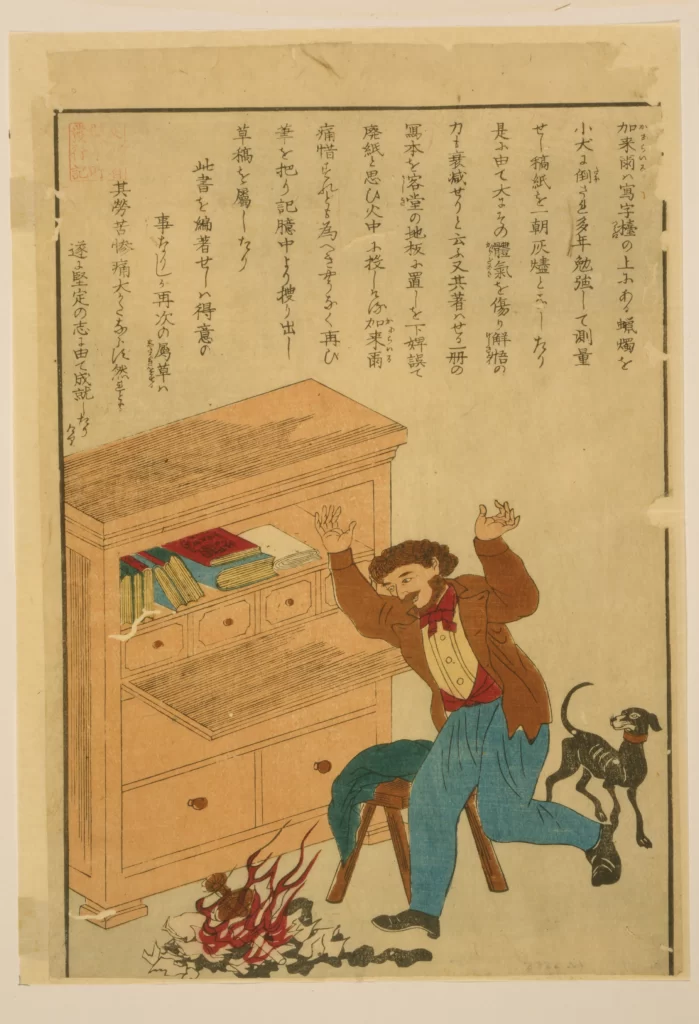 加来爾ハ寫字檯の上にある蝋燭を
小犬に倒され多年勉強して測量
せし稿紙を一朝灰燼となしたり
是に由て大にその體氣を傷り解悟の
力も衰減せりと云ふ又其著ハせる一冊の
寫本を客堂の地板に置しを下婢誤て
廃紙と思ひ火中に投じける加来爾
痛惜すれども為べきなく再び
筆を把り記臆中より捜り出し
草稿を属したり
此書を編著せしハ得意の
事なりしが再次の属草ハ
其勞苦惨痛大かたならず然れども
遂に堅定の志に由て成就したり